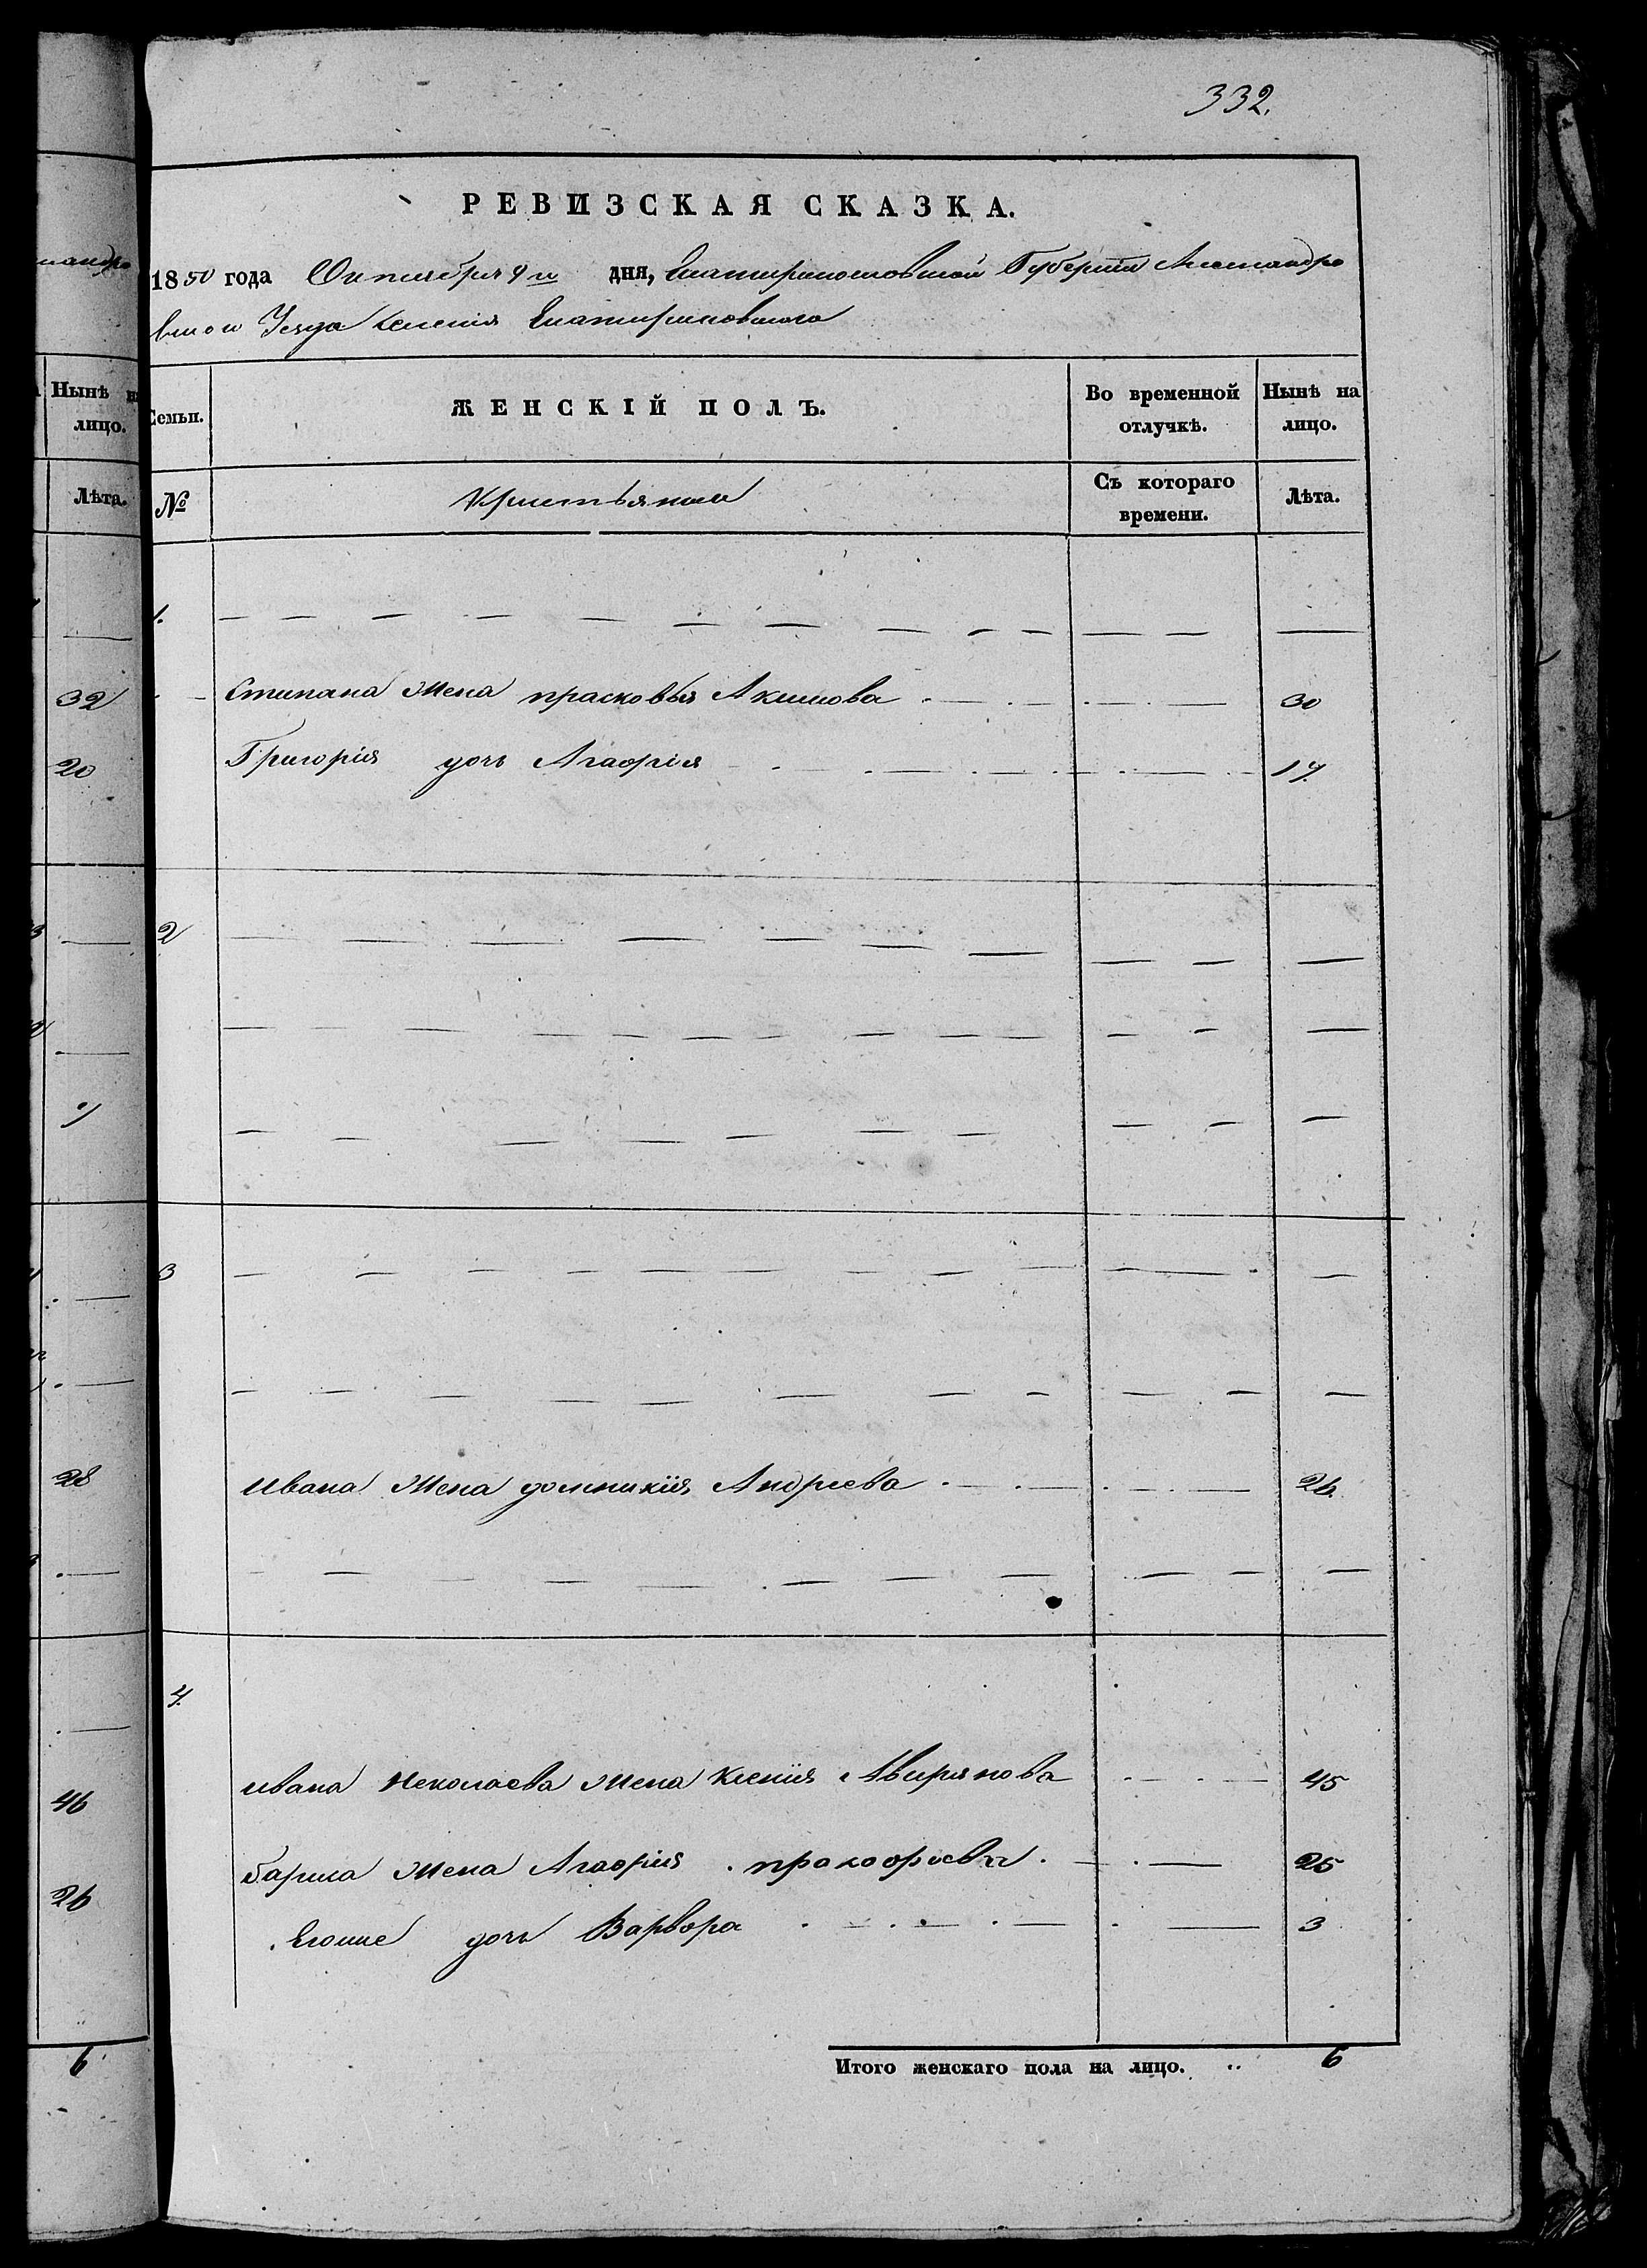 332.
РЕВИЗСКАЯ СКАЗКА.
1850 года Октября 9 го дня, Екатиринославской Губернии Александро
вского Уезда селения Екатириновского
Нынѣ на лицо.
Лѣта.
Семьи. ЖЕНСКІЙ ПОЛЪ. Во временной отлучкѣ. Нынѣ на лицо.
№ Съ котораго времени. Лѣта.
1.
32 Стипана жена прасковья Акимова 30
20 Григорія дочь Агафія 17.
2
3
28 ивана жена домникія Андреева 26
4.
46 ивана Неколаева жена Ксенія Авирянова 45
26 бариса жена Агафія прокофиева 25
Егоже дочь Варвора 3
6 Итого женскаго пола на лицо. 6